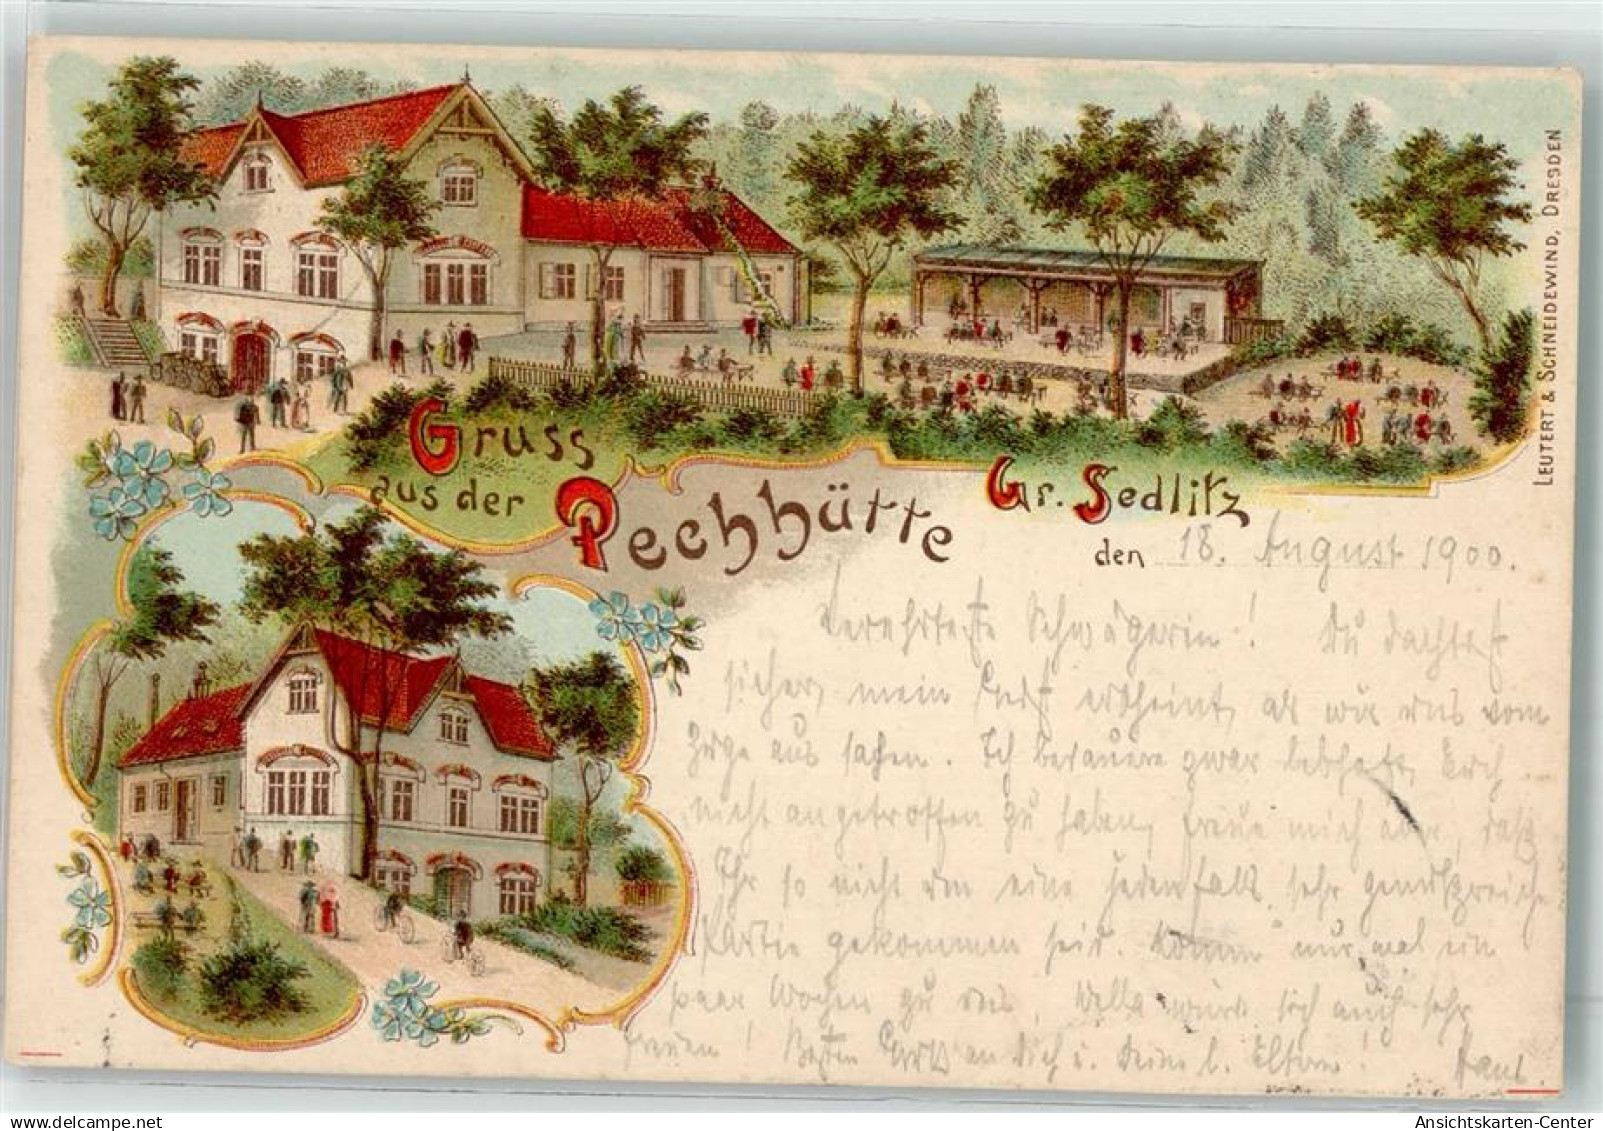 Gruss
aus der
Pechhütte
Gr. Sedlitz
den 18. August 1900.
Verehrteste Schwägerin! Du dachtest
sicher, mein Geist erscheint, als wir uns vom
Zuge aus sahen. Ich bedauere zwar lebhaft, Euch
nicht angetroffen zu haben, freue mich aber, daß
Ihr so nicht um eine jedenfalls sehr genußreiche
Partie gekommen seid. Komm nur mal ein
paar Wochen zu uns, Wella würde sich auch sehr
freuen! Besten Gruß an Dich u. Deine l. Eltern!
LEUTERT & SCHNEIDEWIND, DRESDEN
Ansichtskarten-Center